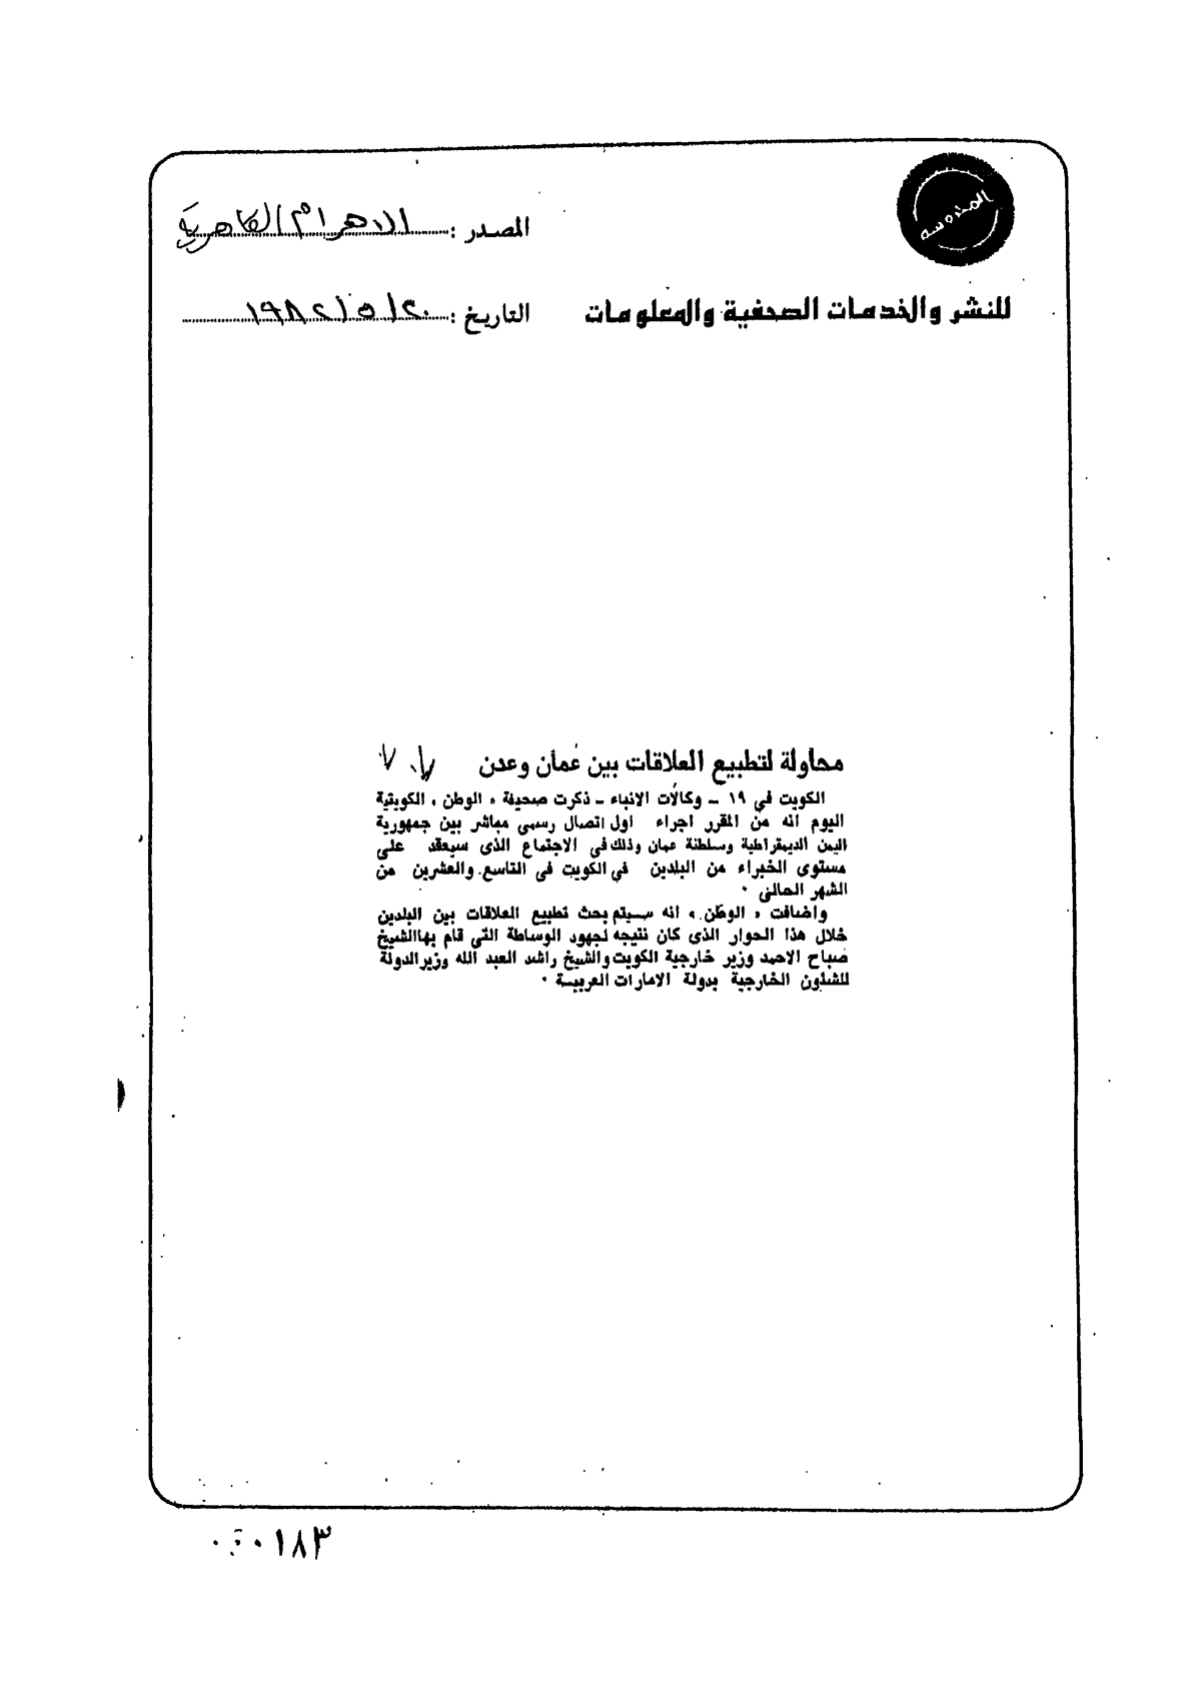 المحروسه
المصدر : الاهرام القاهرية
للنشر والخدمات الصحفية والمعلومات
التاريخ : ٢٠ / ٥ / ١٩٨٢
محاولة لتطبيع العلاقات بين عمان وعدن
الكويت في ١٩ ـ وكالات الانباء ـ ذكرت صحيفة « الوطن » الكويتية
اليوم انه من المقرر اجراء اول اتصال رسمى مباشر بين جمهورية
اليمن الديمقراطية وسلطنة عمان وذلك فى الاجتماع الذى سيعقد على
مستوى الخبراء من البلدين في الكويت فى التاسع والعشرين من
الشهر الحالى .
واضافت « الوطن » انه سيتم بحث تطبيع العلاقات بين البلدين
خلال هذا الحوار الذى كان نتيجه لجهود الوساطة التى قام بهاالشيخ
صباح الاحمد وزير خارجية الكويت والشيخ راشد العبد الله وزيرالدولة
للشئون الخارجية بدولة الامارات العربيسة .
١٨٣